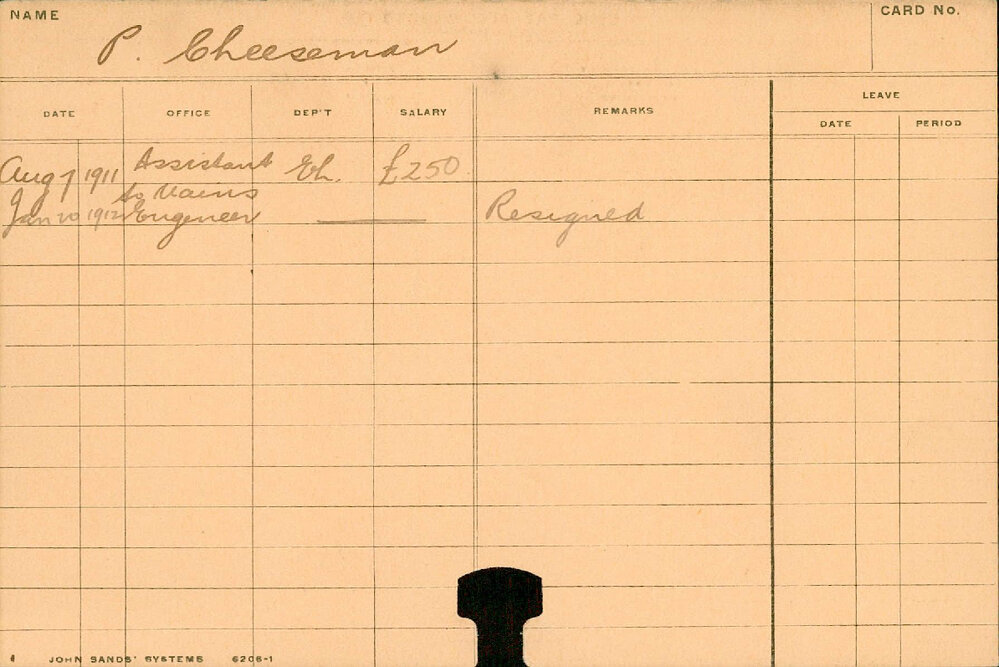 NAME
CARD No.
P. Cheeseman
LEAVE
DATE OFFICE DEP'T SALARY REMARKS DATE PERIOD
Aug 7 1911 Assistant El. £250
to Mains
Jan 20 1912 Engineer Resigned
JOHN SANDS' SYSTEMS 6206-1